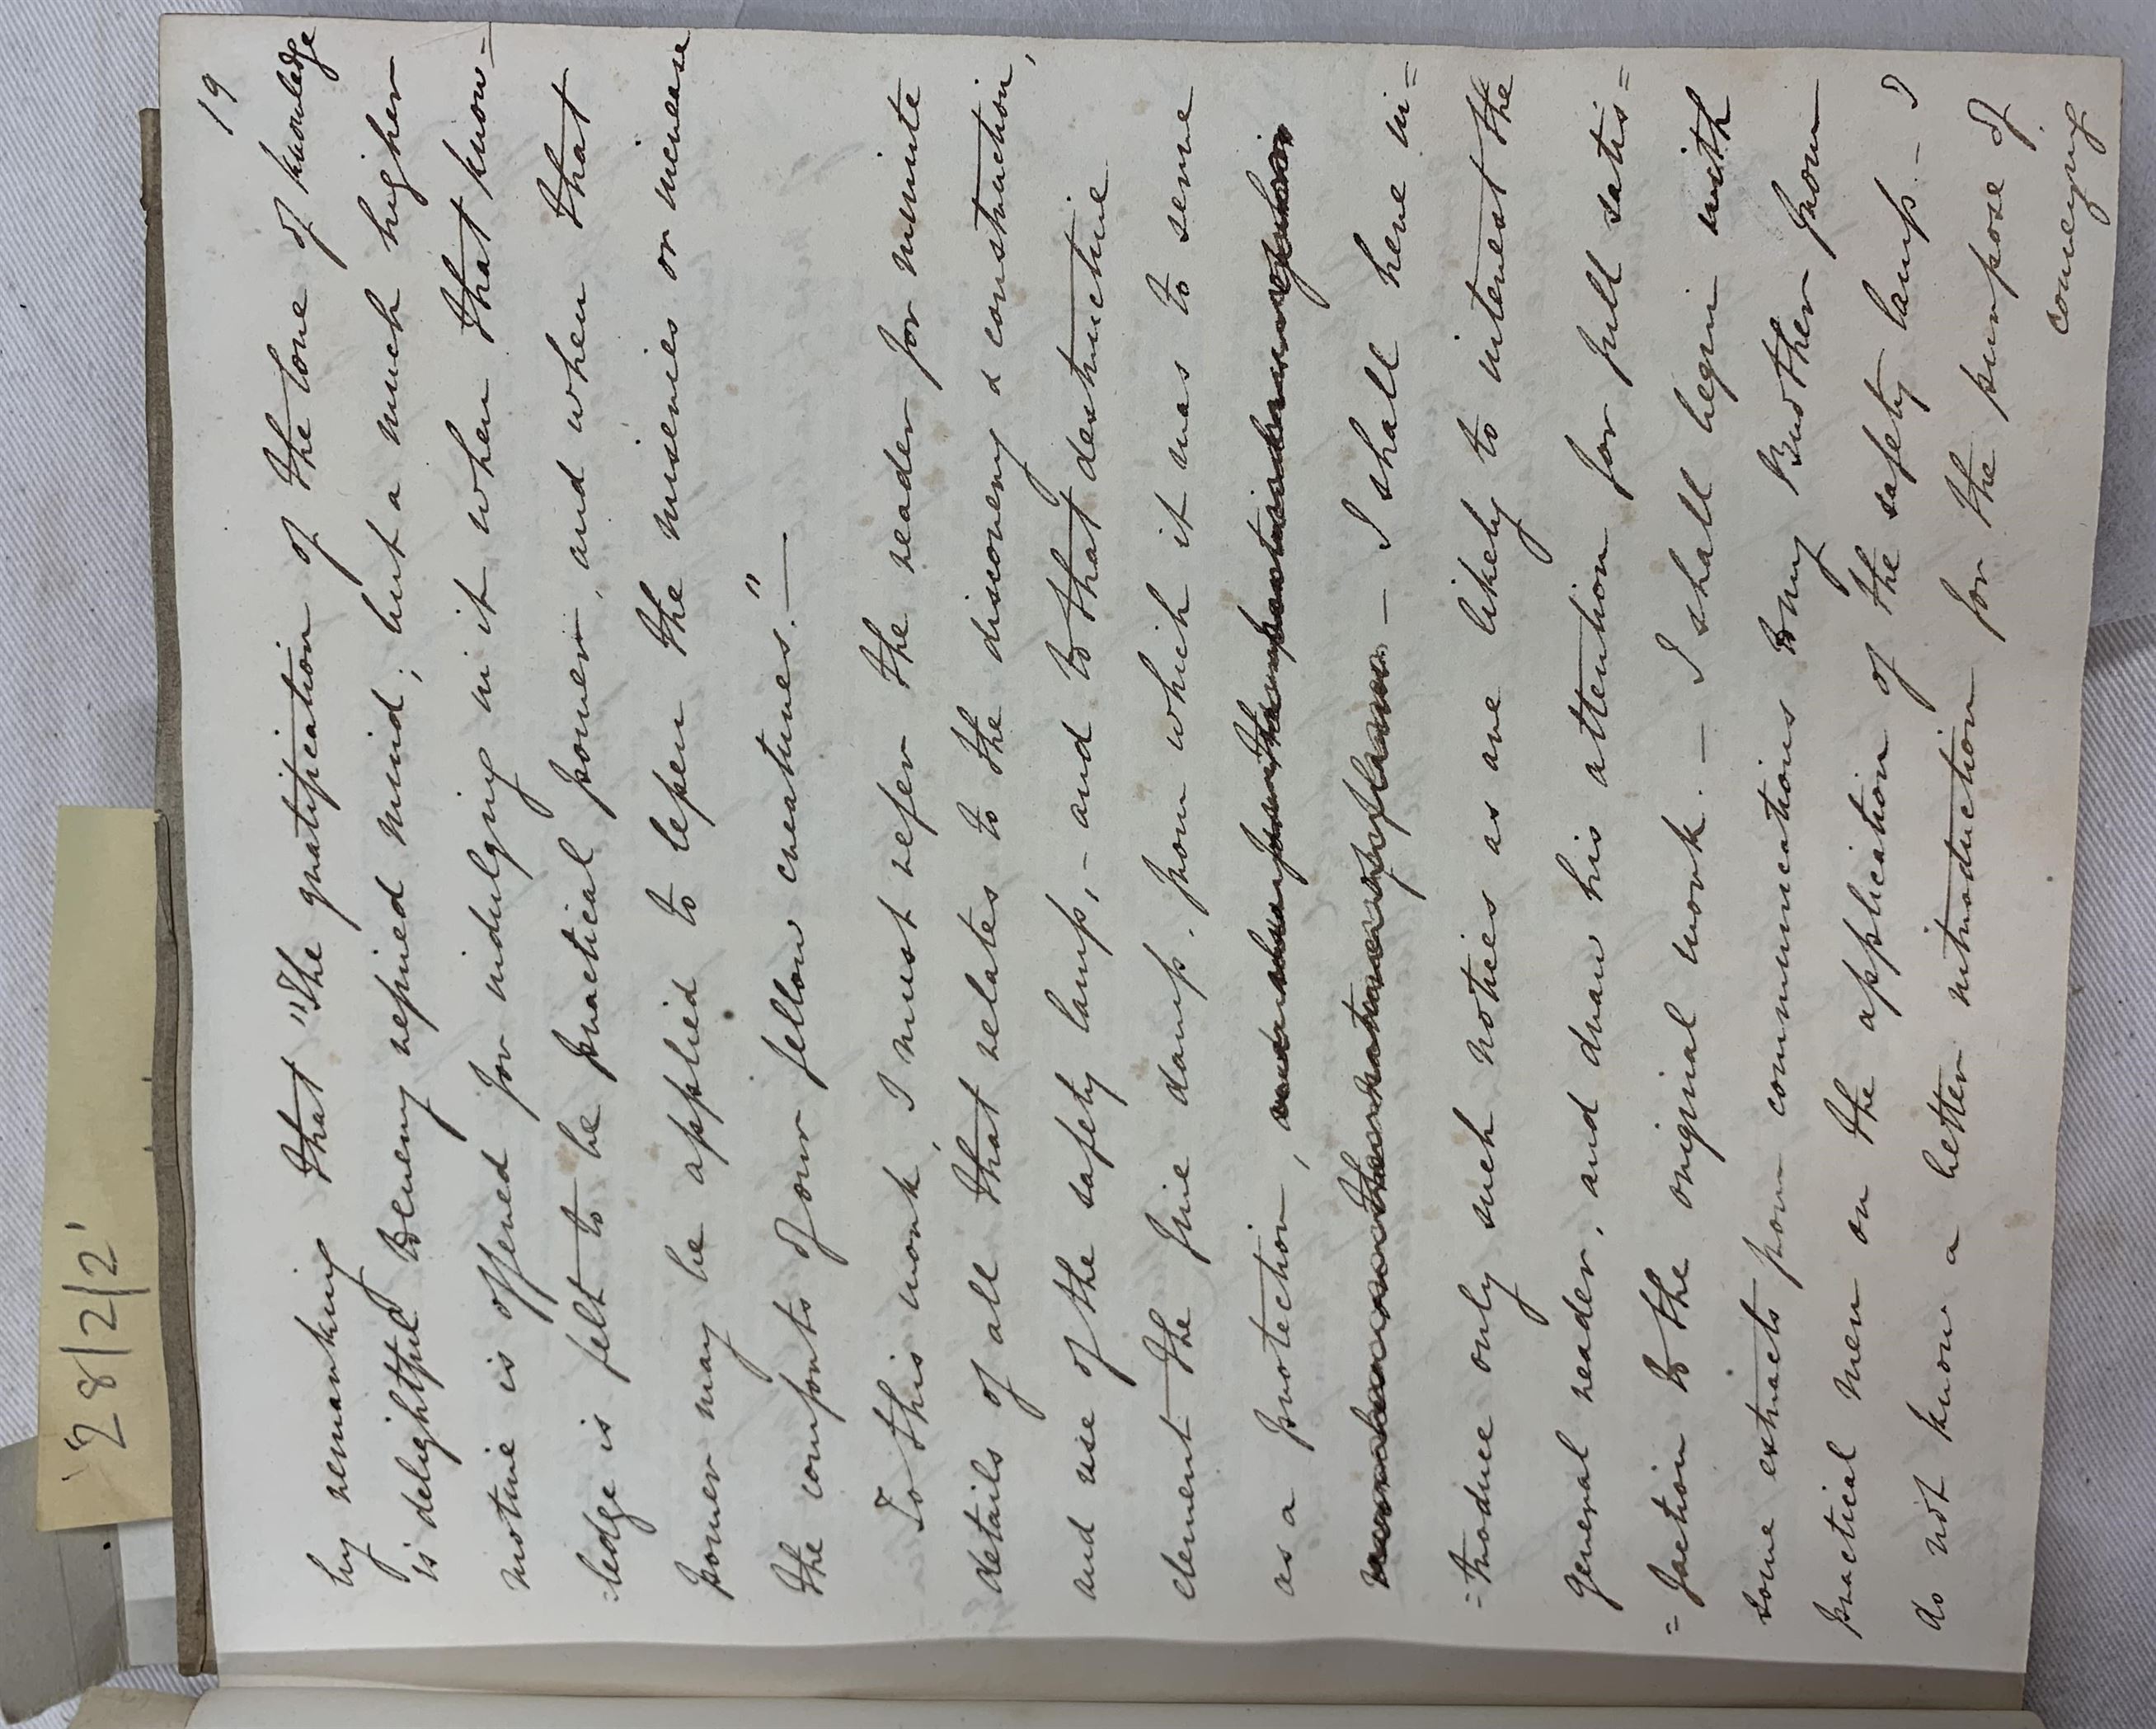 28/2/2
19
by remarking that "The gratification of the love of knowledge
is delightful to every refined mind; but a much higher
motive is offered for indulging in it when that know=
=ledge is felt to be practical power, and when that
power may be applied to lessen the miseries or increase
the comforts of our fellow creatures."—
To this work, I must refer the reader for minute
details of all that relates to the discovery & construction,
and use of the safety lamp,– and to that destructive
element the fire damp. from which it was to serve
as a protection,
— I shall here in=
=troduce only such notices as are likely to interest the
general reader, and draw his attention for full satis=
=faction to the original work. — I shall begin with
some extracts from communications to my Brother from
practical men on the application of the safety lamp. – I
do not know a better introduction for the purpose of
conveying